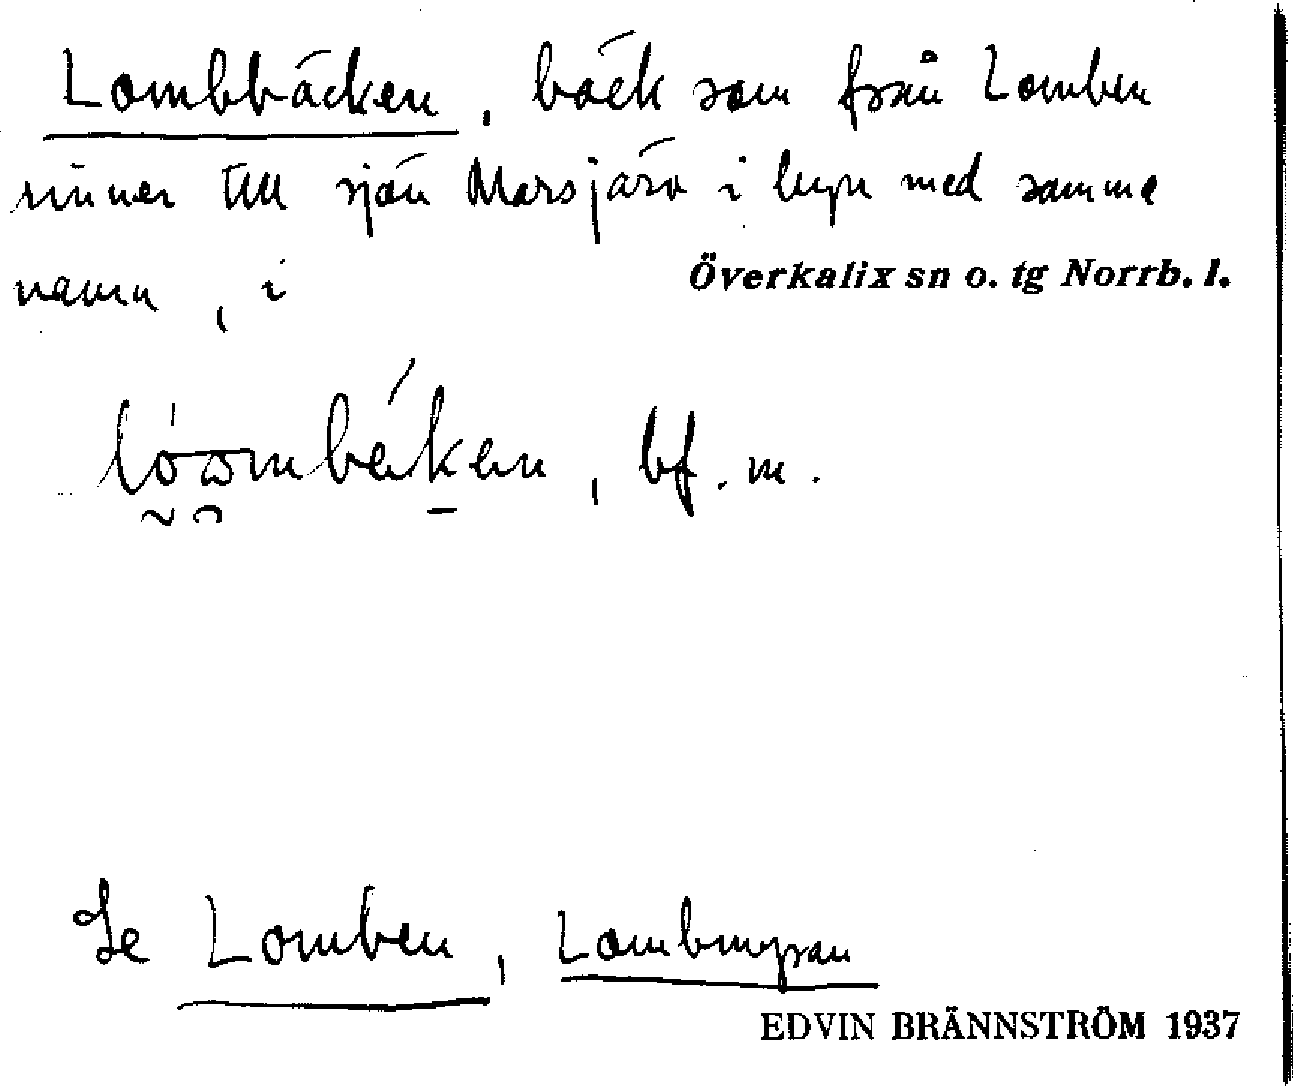 Lombbäcken, bäck som från Lomben
rinner till sjön Marsjärv i byn med samma
namn, i Överkalix sn o. tg Norrb. l.
, bf. m.
Se Lomben, Lombmyran
EDVIN BRÄNNSTRÖM 1937